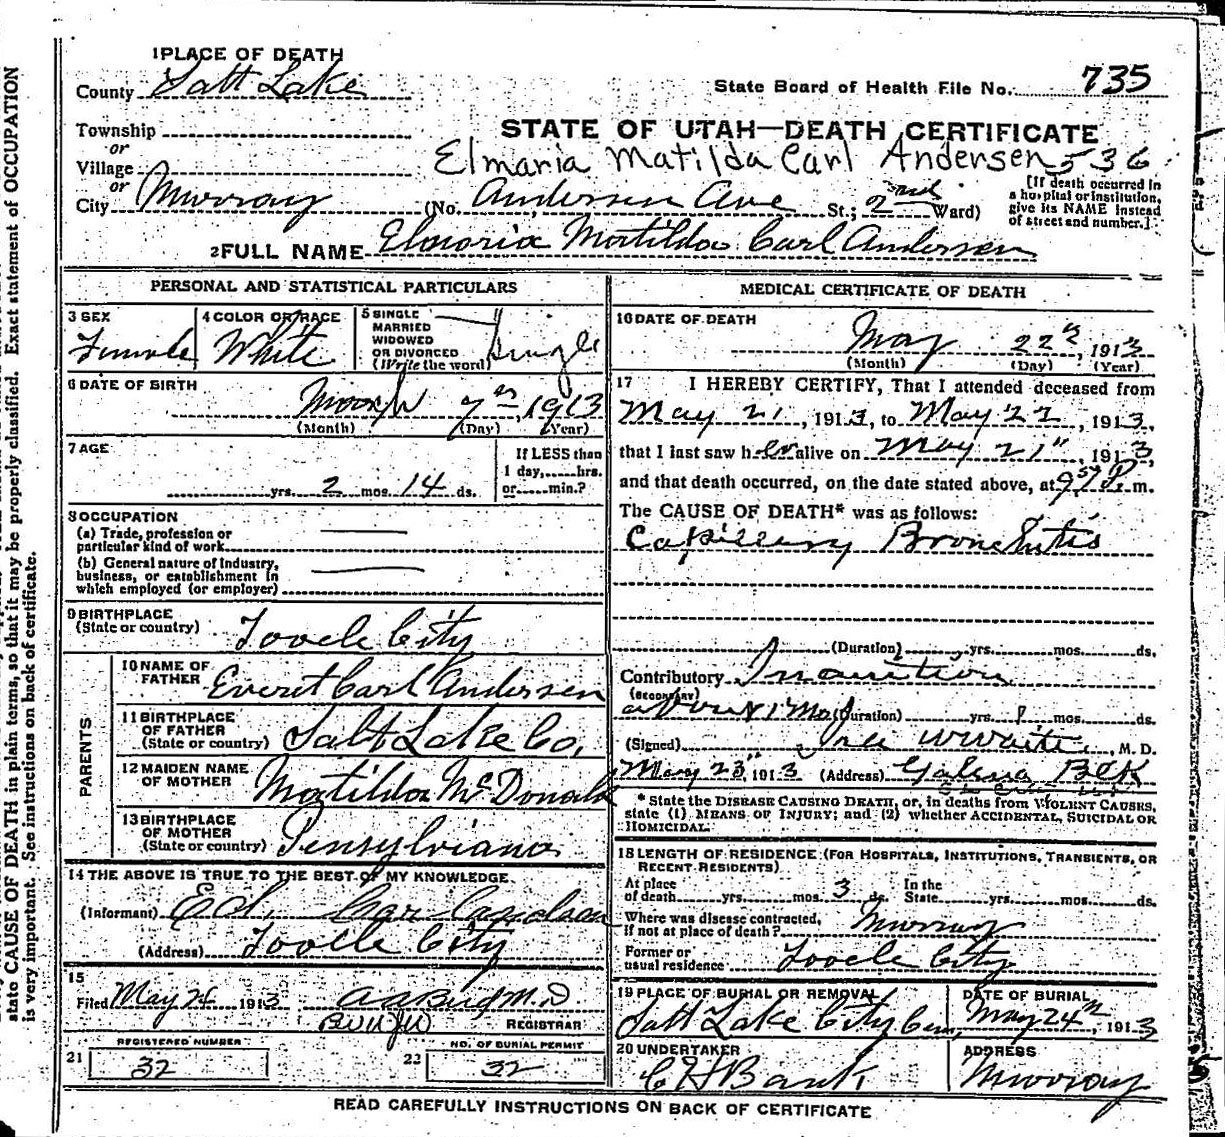 1 PLACE OF DEATH
County Salt Lake
State Board of Health File No. 735
Township
or
STATE OF UTAH—DEATH CERTIFICATE
Village
Elmaria Matilda Carl Andersen 536
or
City Murray (No. Andersen Ave St.; 2nd Ward)
[If death occurred in a hospital or institution, give its NAME instead of street and number.]
2 FULL NAME Elmoria Matilda Carl Andersen
PERSONAL AND STATISTICAL PARTICULARS
3 SEX
Female
4 COLOR OR RACE
White
5 SINGLE
MARRIED
WIDOWED
OR DIVORCED
(Write the word)
Single
6 DATE OF BIRTH
March 7th 1913
(Month) (Day) (Year)
7 AGE
yrs. 2 mos. 14 ds.
If LESS than
1 day, hrs.
or min.?
8 OCCUPATION
(a) Trade, profession or
particular kind of work
(b) General nature of Industry,
business, or establishment in
which employed (or employer)
9 BIRTHPLACE
(State or country) Tooele City
PARENTS
10 NAME OF
FATHER Everet Carl Andersen
11 BIRTHPLACE
OF FATHER
(State or country) Salt Lake Co,
12 MAIDEN NAME
OF MOTHER Matilda McDonald
13 BIRTHPLACE
OF MOTHER
(State or country) Pensylviana
14 THE ABOVE IS TRUE TO THE BEST OF MY KNOWLEDGE
(Informant) Ed.
(Address) Tooele City
15
Filed May 24 1913
M.D
REGISTRAR
REGISTERED NUMBER
21 32
NO. OF BURIAL PERMIT
22 32
MEDICAL CERTIFICATE OF DEATH
16 DATE OF DEATH
May 22nd, 1913
(Month) (Day) (Year)
17 I HEREBY CERTIFY, That I attended deceased from
May 21, 1913, to May 22, 1913,
that I last saw her alive on May 21", 1913,
and that death occurred, on the date stated above, at P. m.
The CAUSE OF DEATH* was as follows:
Capillary Bronchitis
(Duration) yrs. mos. ds.
Contributory Inanition
(SECONDARY)
about 1 Mo (Duration) yrs. 1 mos. ds.
(Signed) M. D.
May 23", 1913 (Address)
* State the DISEASE CAUSING DEATH, or, in deaths from VIOLENT CAUSES,
state (1) MEANS OF INJURY; and (2) whether ACCIDENTAL, SUICIDAL OR
HOMICIDAL.
18 LENGTH OF RESIDENCE (FOR HOSPITALS, INSTITUTIONS, TRANSIENTS, OR
RECENT RESIDENTS)
At place
of death yrs. mos. 3 ds.
In the
State yrs. mos. ds.
Where was disease contracted,
if not at place of death? Murray
Former or
usual residence Tooele City
19 PLACE OF BURIAL OR REMOVAL
Salt Lake City Cem,
DATE OF BURIAL
May 24th, 1913
20 UNDERTAKER
ADDRESS
Murray
READ CAREFULLY INSTRUCTIONS ON BACK OF CERTIFICATE
state CAUSE OF DEATH in plain terms, so that it may be properly classified. Exact statement of OCCUPATION
is very important. See instructions on back of certificate.